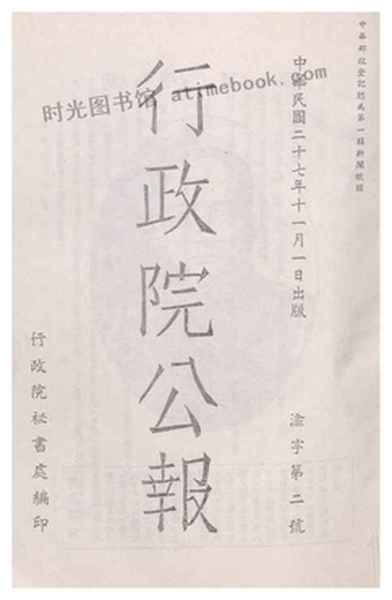 中華郵政登記認為第一類新聞紙類
中華民國二十七年十一月一日出版
渝字第二號
行政院公報
行政院祕書處編印
时光图书馆 atimebook.com